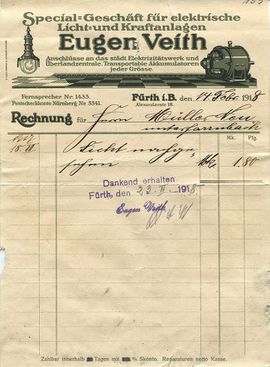 Special-Geschäft für elektrische
Licht- und Kraftanlagen
Eugen Veith
Anschlüsse an das städt. Elektrizitätswerk und
Überlandzentrale, Transportable Akkumulatoren
jeder Grösse.
Fernsprecher Nr. 1435.
Postscheckkonto Nürnberg Nr. 5341.
Fürth i.B. 17 Febr. 1918
Alexanderstr. 18.
Rechnung für Herrn Müller Neu
unterfarrnbach
Mk. Pfg.
Licht nachge-
sehen 1.80
Dankend erhalten
Fürth, den 23. II. 1918
Eugen Veith
Zahlbar innerhalb Tagen mit % Skonto. Reparaturen netto Kasse.